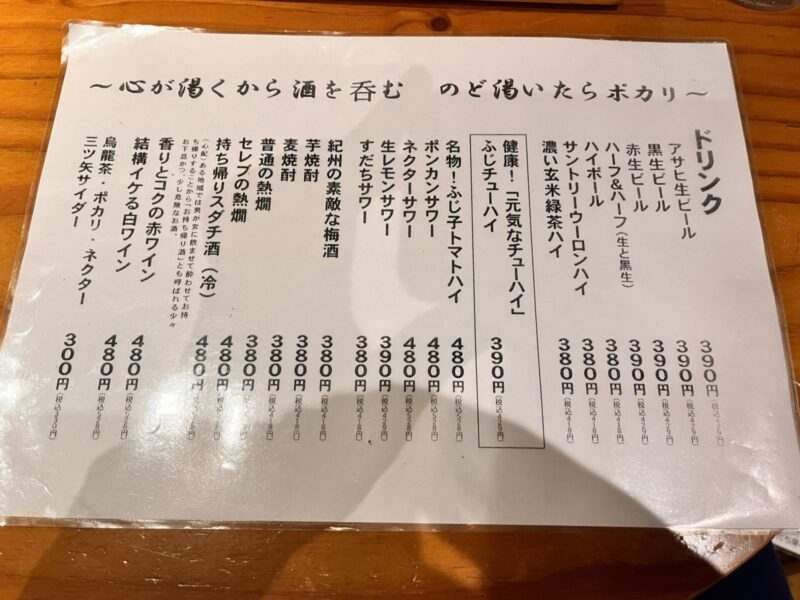 ～心が渇くから酒を呑む　のど渇いたらポカリ～
ドリンク
アサヒ生ビール 390円(税込429円)
黒生ビール 390円(税込429円)
赤生ビール 390円(税込429円)
ハーフ＆ハーフ(生と黒生) 390円(税込429円)
ハイボール 380円(税込418円)
サントリーウーロンハイ 380円(税込418円)
濃い玄米緑茶ハイ 380円(税込418円)
健康！「元気なチューハイ」
ふじチューハイ 390円(税込429円)
名物！ふじ子トマトハイ 480円(税込528円)
ポンカンサワー 480円(税込528円)
ネクターサワー 480円(税込528円)
生レモンサワー 390円(税込429円)
すだちサワー 380円(税込418円)
紀州の素敵な梅酒 380円(税込418円)
芋焼酎 380円(税込418円)
麦焼酎 380円(税込418円)
普通の熱燗 380円(税込418円)
セレブの熱燗 480円(税込528円)
持ち帰りスダチ酒（冷） 480円(税込528円)
(心配)ある地域では男が女に飲ませて酔わせてお持
ち帰りすることから「お持ち帰り酒」とも呼ばれる少々
お下品かつ、少し危険なお酒。
香りとコクの赤ワイン 480円(税込528円)
結構イケる白ワイン 480円(税込528円)
烏龍茶・ポカリ・ネクター
三ツ矢サイダー 300円(税込330円)